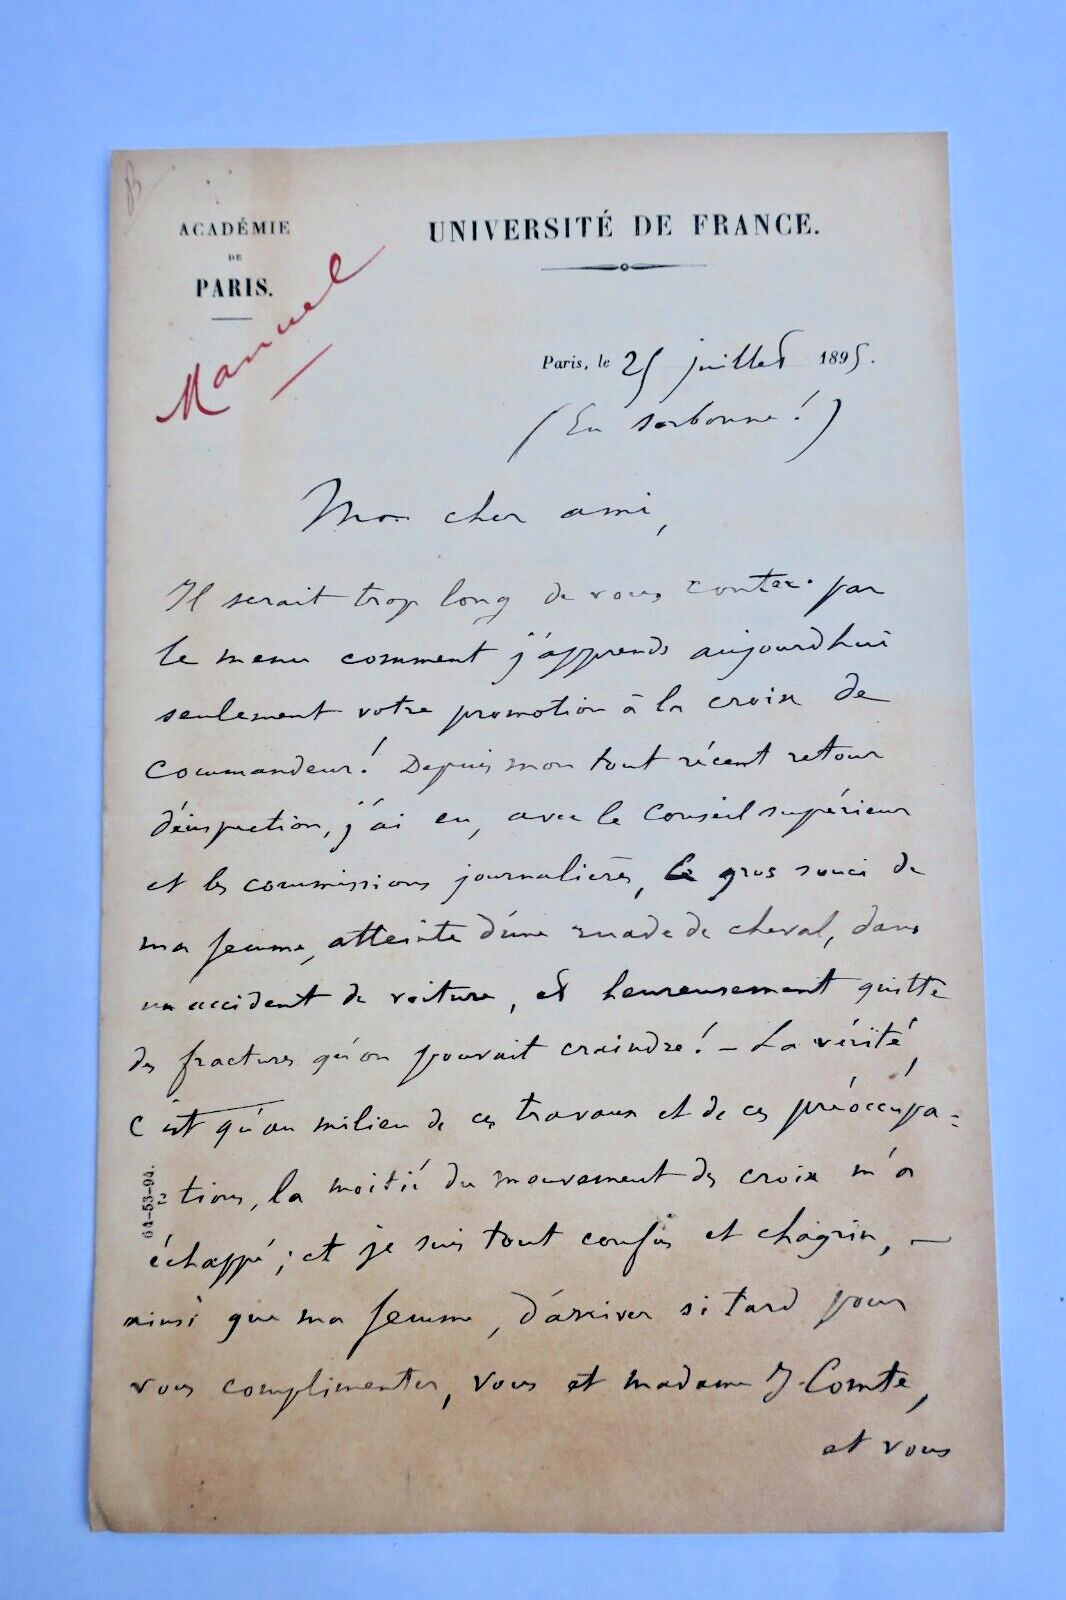 ACADÉMIE
DE
PARIS.
Manuel
UNIVERSITÉ DE FRANCE.
Paris, le 25 juillet 1895.
(En Sorbonne!)
Mon cher ami,
Il serait trop long de vous conter par
le menu comment j'apprends aujourdhui
seulement votre promotion à la croix de
commandeur! Depuis mon tout récent retour
d'inspection, j'ai eu, avec le Conseil supérieur
et les commissions journalières, le gros souci de
ma femme, atteinte d'une ruade de cheval, dans
un accident de voiture, et heureusement quitte
des fractures qu'on pouvait craindre! – La vérité,
c'est qu'au milieu de ces travaux et de ces préoccupa=
=tions, la moitié du mouvement des croix m'a
échappé; et je suis tout confus et chagrin, –
ainsi que ma femme, d'arriver si tard pour
vous complimenter, vous et madame J. Comte,
et vous
64-53-94.